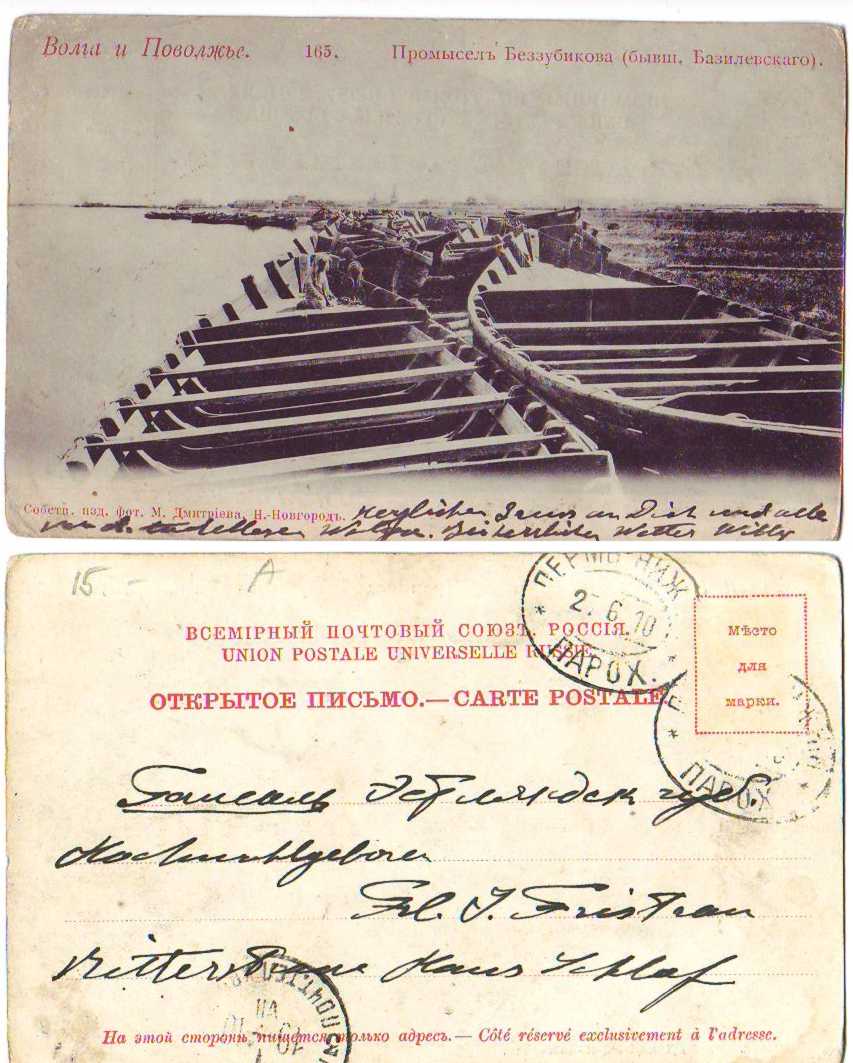 Волга и Поволжье. 165. Промыселъ Беззубикова (бывш. Базилевскаго).
Собств. изд. фот. М. Дмитріева, Н.-Новгородъ.
Herzlichen Gruss an Dich und alle
von der Wolga. Wetter Willy
15.- A
ПЕРМЬ НИЖ
2. 6 10
ПАРОХ.
ВСЕМІРНЫЙ ПОЧТОВЫЙ СОЮЗЪ. РОССІЯ.
UNION POSTALE UNIVERSELLE RUSSIE.
Мѣсто
для
марки.
ОТКРЫТОЕ ПИСЬМО.—CARTE POSTALE.
ПАРОХ
Гапсаль Эстляндск губ.
Hochwohlgeboren
Frl. J.
Ritterstrasse Haus Schlaf
На этой сторонѣ пишется только адресъ.— Côté réservé exclusivement à l'adresse.